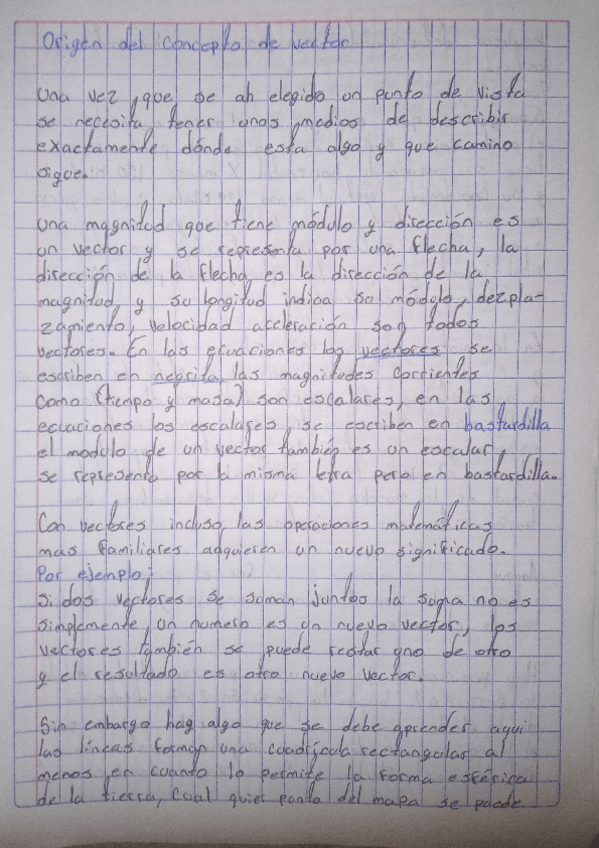 Origen del concepto de vector
Una vez, que se ah elegido un punto de vista
se necesita tener unos medios de describir
exactamente dónde esta algo y que camino
sigue.
Una magnitud que tiene módulo y dirección es
un vector y se representa por una flecha, la
dirección de la flecha es la dirección de la
magnitud y su longitud indica su módulo, dezpla-
zamiento, velocidad acceleración son todos
vectores. En las ecuaciones los vectores se
escriben en negrita, las magnitudes corrientes
como (tiempo y masa) son escalares, en las
ecuaciones los escalares, se escriben en bastardilla
el modulo de un vector también es un escalar,
se representa por la misma letra pero en bastardilla.
Con vectores incluso las operaciones matemáticas
mas familiares adquieren un nuevo significado.
Por ejemplo:
Si dos vectores se suman juntos la suma no es
simplemente un numero es un nuevo vector, los
vectores también se puede restar uno de otro
y el resultado es otro nuevo vector.
Sin embargo hay algo que se debe aprender aqui
las líneas forman una cuadrícula rectangular al
menos en cuando lo permite la forma esférica
de la tierra, cual quier punto del mapa se puede